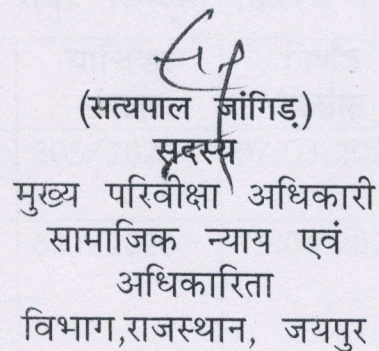 (सत्यपाल जांगिड़)
सदस्य
मुख्य परिवीक्षा अधिकारी
सामाजिक न्याय एवं
अधिकारिता
विभाग,राजस्थान, जयपुर